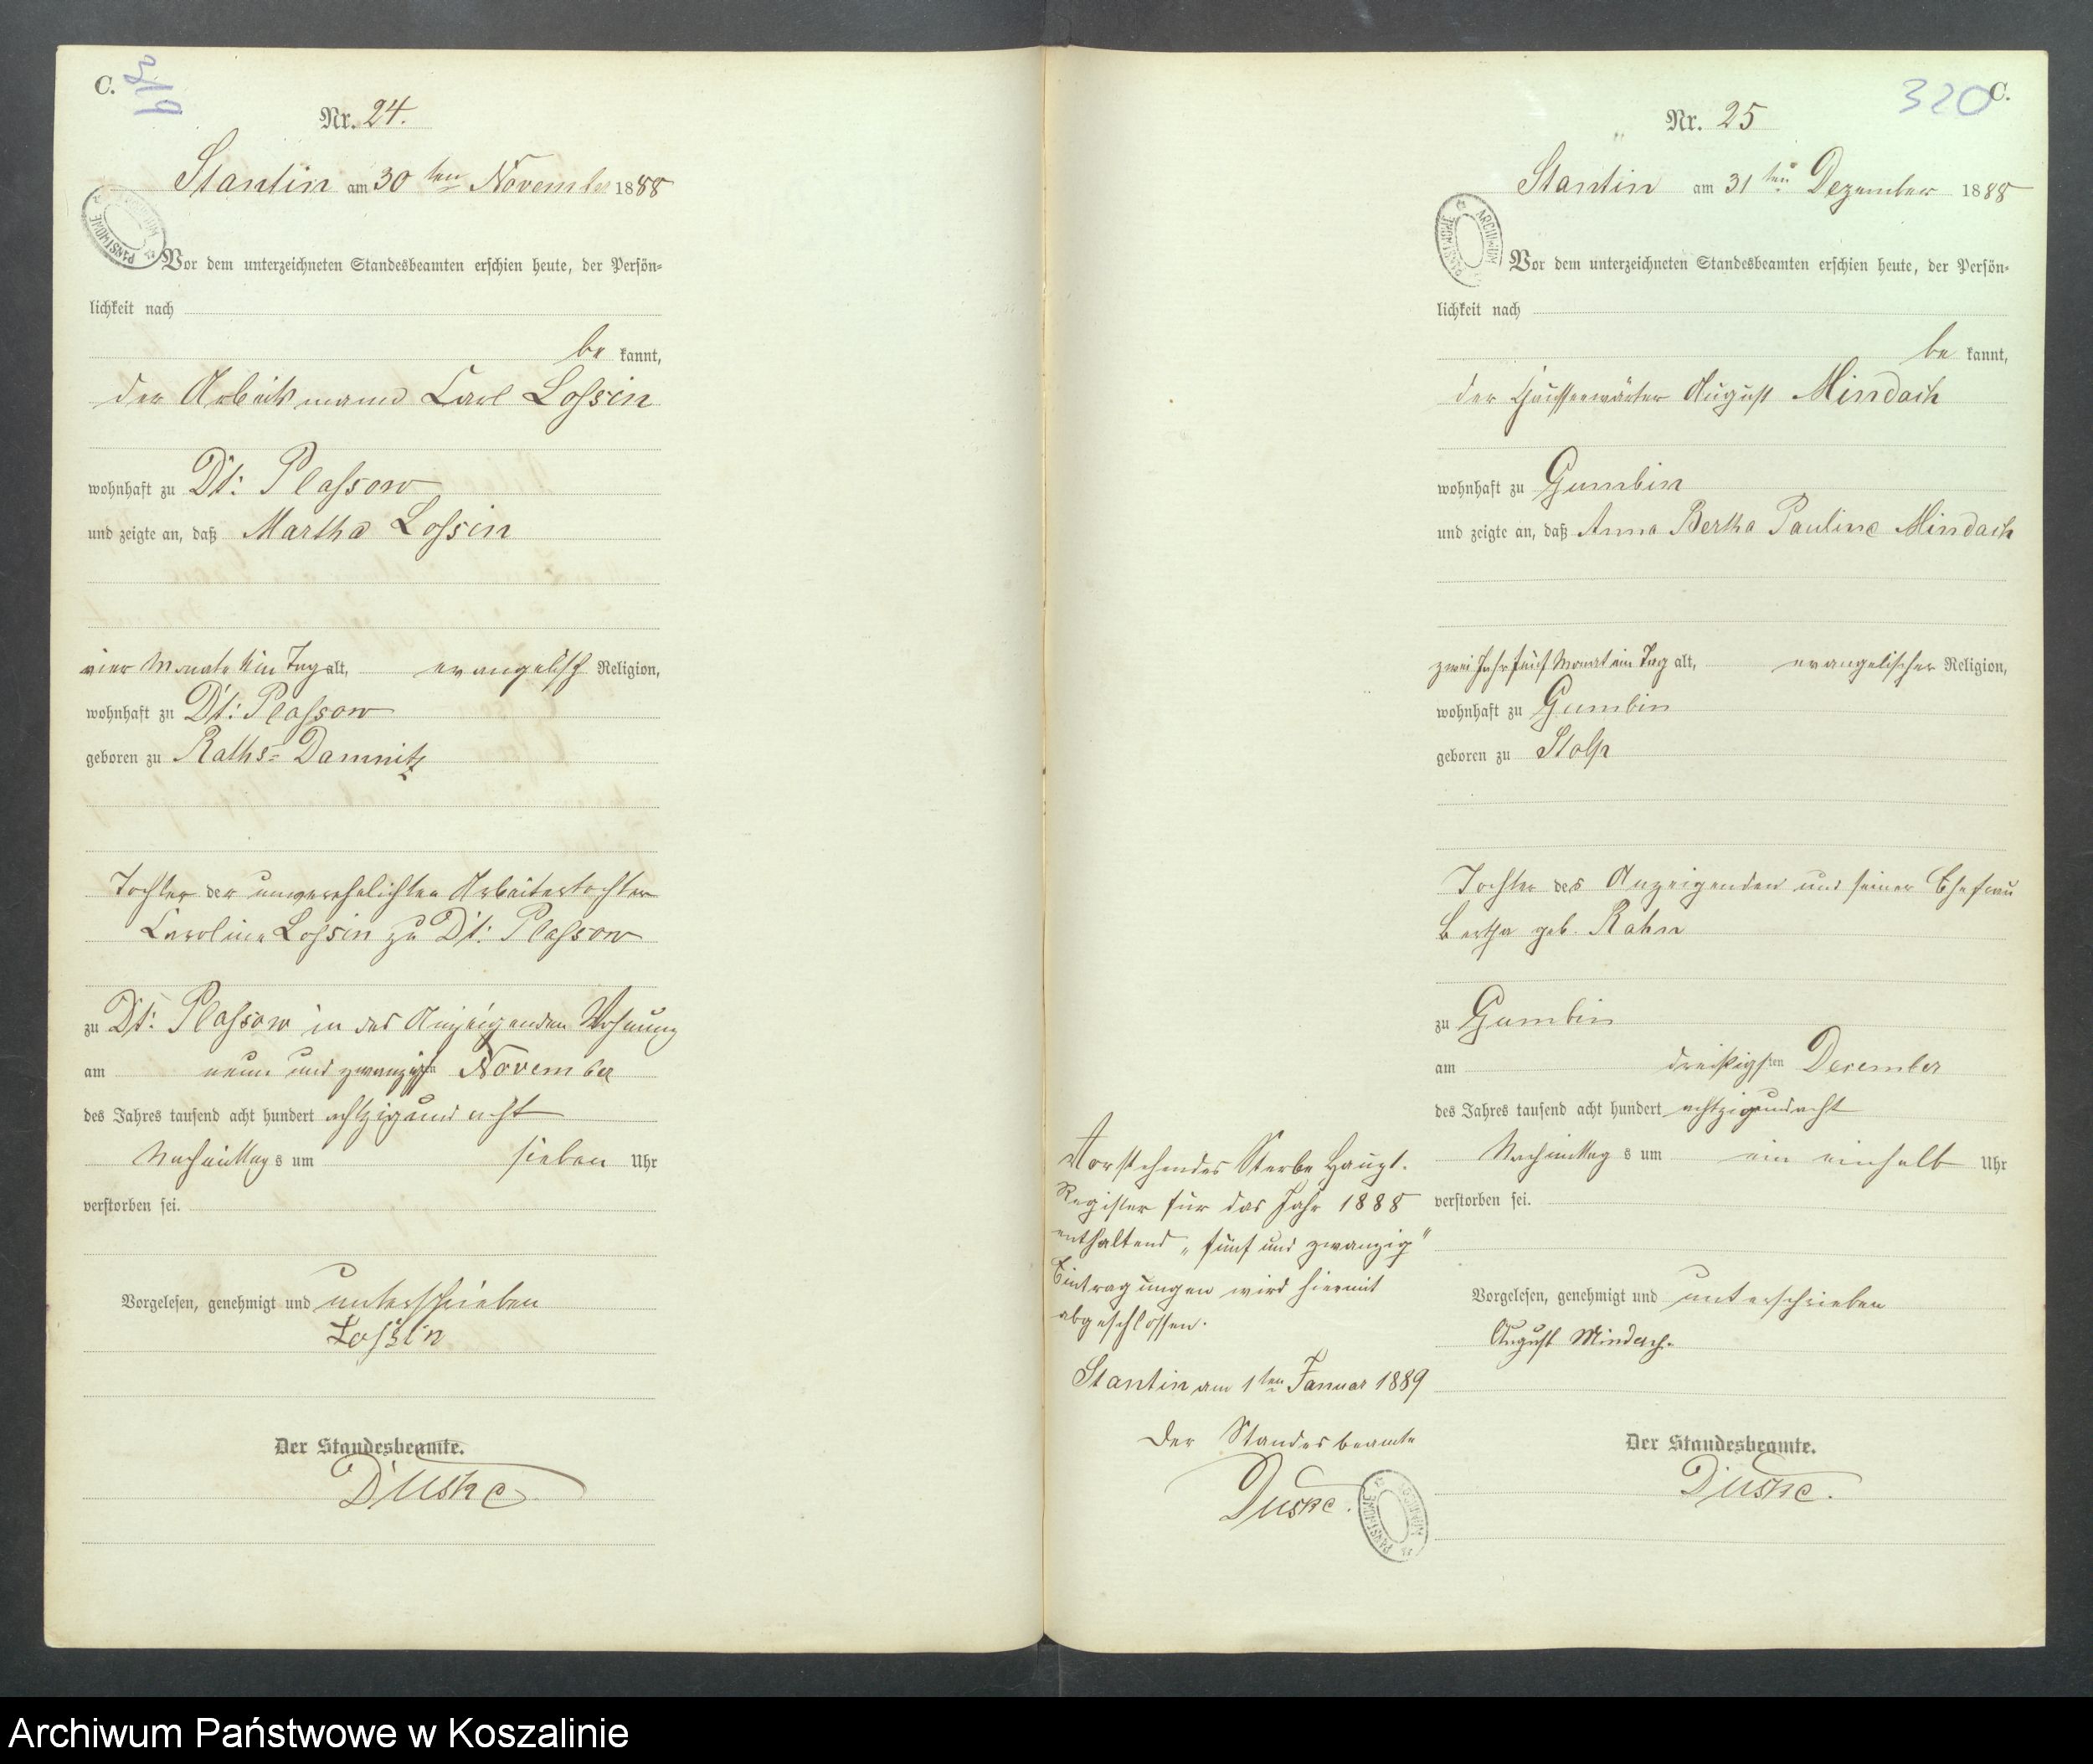 C.
319
Nr. 24.
Stantin am 30ten November 1888
Vor dem unterzeichneten Standesbeamten erschien heute, der Persön-
lichkeit nach
be kannt,
der Arbeitsmann Carl Lossin
wohnhaft zu Dt: Plassow
und zeigte an, daß Martha Lossin
vier Monate ein Tag alt, evangelisch Religion,
wohnhaft zu Dt: Plassow
geboren zu Raths-Damnitz
Tochter der unverehelichten Arbeitertochter
Caroline Lossin zu Dt: Plassow
zu Dt: Plassow in des Anzeigenden Wohnung
am neun und zwanzigsten November
des Jahres tausend acht hundert achtzigundacht
Nachmittags um sieben Uhr
verstorben sei.
Vorgelesen, genehmigt und unterschrieben
Lossin
Der Standesbeamte.
Duske
Vorstehendes Sterbe Haupt-
Register für das Jahr 1888
enthaltend „fünf und zwanzig"
Eintragungen wird hiermit
abgeschlossen.
Stantin am 1ten Januar 1889
Der Standesbeamte
Duske.
320
C.
Nr. 25
Stantin am 31ten Dezember 1888
Vor dem unterzeichneten Standesbeamten erschien heute, der Persön-
lichkeit nach
be kannt,
der Chausseewärter August Mindach
wohnhaft zu Gumbin
und zeigte an, daß Anna Bertha Pauline Mindach
zwei Jahr fünf Monat ein Tag alt, evangelischer Religion,
wohnhaft zu Gumbin
geboren zu Stolp
Tochter des Anzeigenden und seiner Ehefrau
Bertha geb. Rahn
zu Gumbin
am dreißigsten December
des Jahres tausend acht hundert achtzigundacht
Nachmittags um ein einhalb Uhr
verstorben sei.
Vorgelesen, genehmigt und unterschrieben
August Mindach.
Der Standesbeamte.
Duske.
ARCHIWUM PAŃSTWOWE
Archiwum Państwowe w Koszalinie